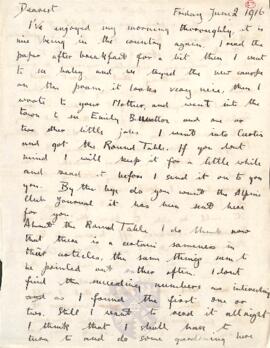 Dearest Friday June 2 1916
I've enjoyed my morning thoroughly, it is
nice being in the country again. I read the
paper after breakfast for a bit then I went
to see baby and we tryed the new canopy
on the pram, it looks very nice, then I
wrote to your Mother, and went into the
town to see Emily B and one or
two other little jobs. I went into Curtis
and got the Round Table. If you dont
mind I will keep it for a little while
and read it before I send it on to you
you. By the bye do you want the Alpine
Club Journal it has been sent here
for you.
About the Round Table I do think now
that there is a certain sameness in
their articles, the same things seem to
be pointed out rather often. I dont
find the succeeding numbers as interesting
and as I found the first one or
two. Still I want to read it all right
I think that I shall have to
turn to and do some gardening now